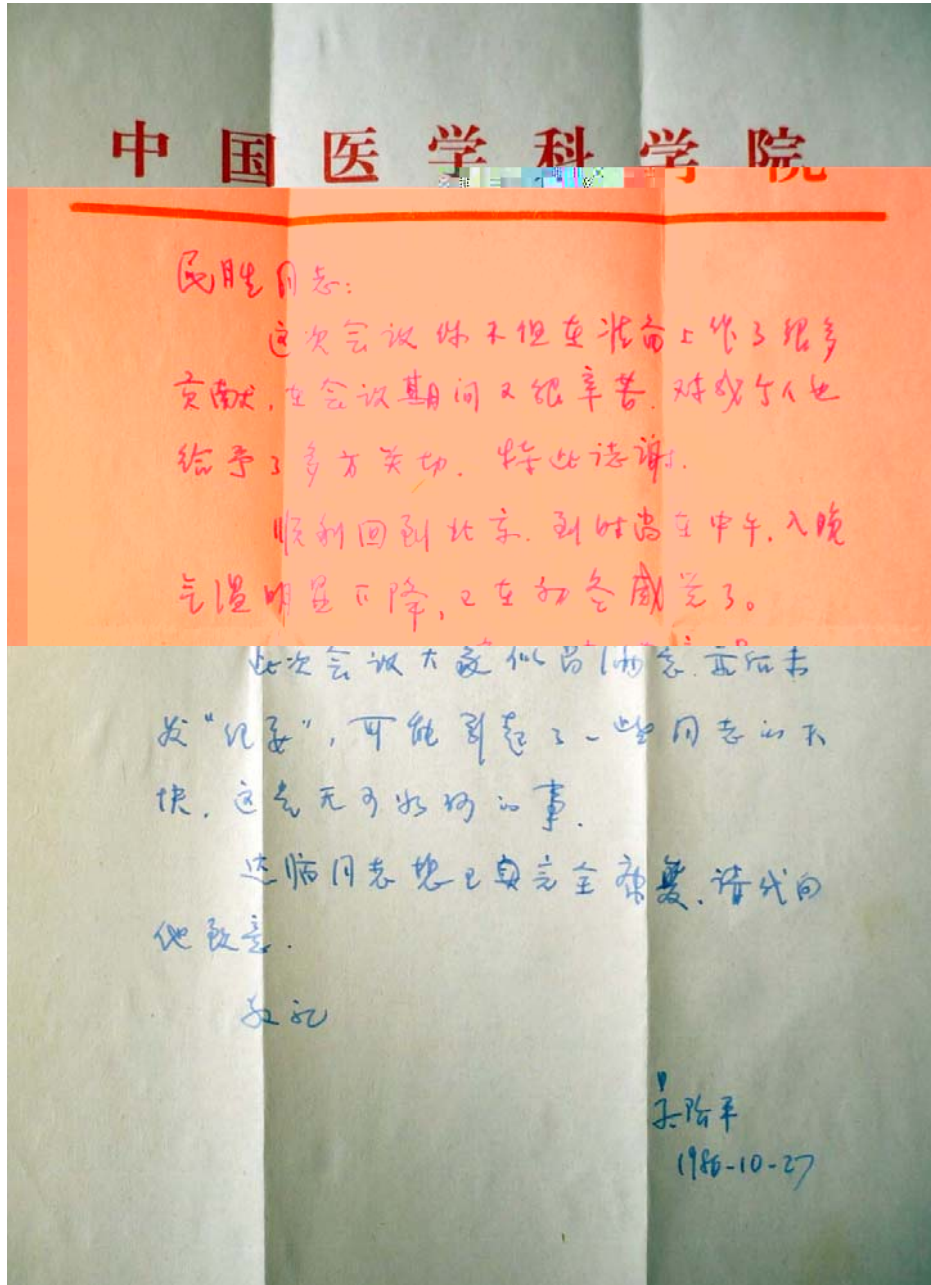 中国医学科学院
民胜同志：
这次会议你不但在准备上作了很多
贡献，在会议期间又很辛苦，对我个人也
给予了多方关切，特此志谢。
顺利回到北京，到时尚在中午，入晚
气温明显下降，已在初冬感觉了。
此次会议大家似尚满意，最后未
发“纪要”，可能引起了一些同志的不
快，这是无可如何的事。
同志想已完全康复，请代向
他致意。
敬礼
吴阶平
1986-10-27